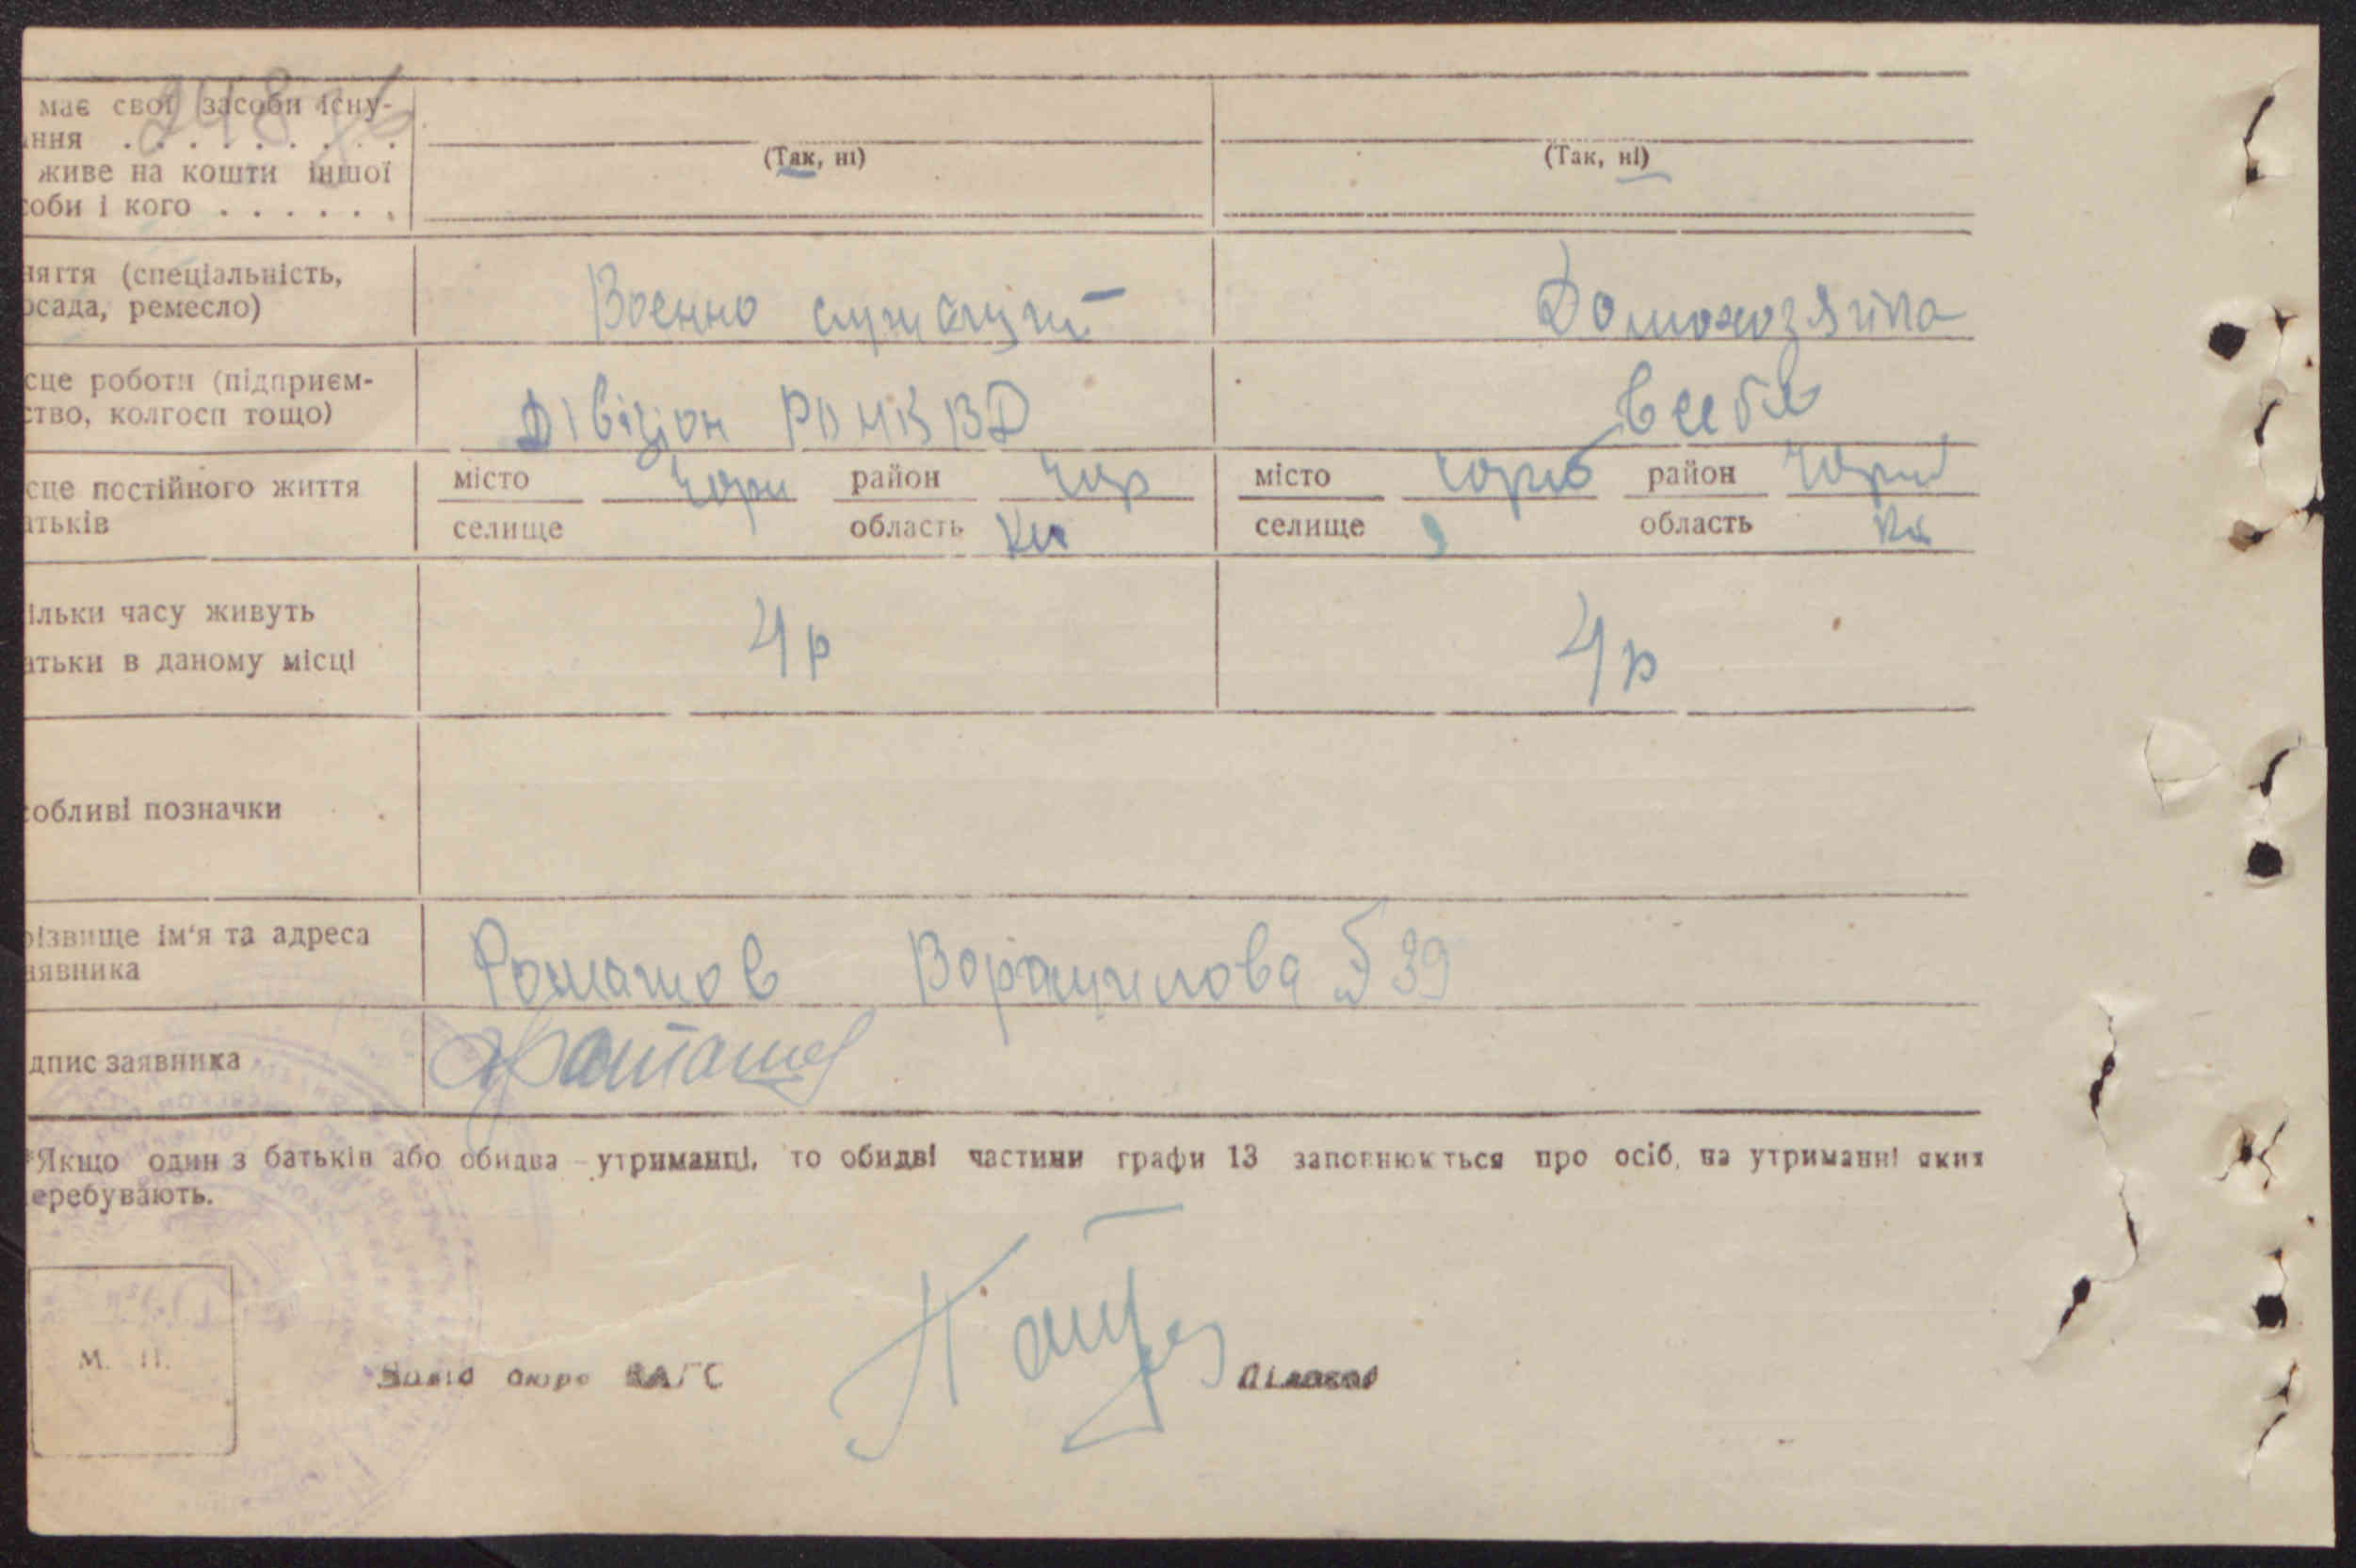 248
має свої засоби існу-
ання . . . . . . . . .
живе на кошти іншої
соби і кого . . . . . .
(Так, ні)
(Так, ні)
няття (спеціальність,
осада, ремесло)
Военно служащий
Домохозяйка
сце роботи (підприєм-
ство, колгосп тощо)
Дівізіон РО НКВД
сце постійного життя
атьків
місто Чорн район Чор
селище область Ки
місто Чорно район Чорн
селище область Ки
ільки часу живуть
атьки в даному місці
4 р
4 р
собливі позначки
різвище ім'я та адреса
аявника
Ромашов Ворошилова 39
дпис заявника
Ромашов
*Якщо один з батьків або обидва утриманці, то обидві частини графи 13 заповнюються про осіб, на утриманні яких
еребувають.
М. П.
бюро ЗАГС